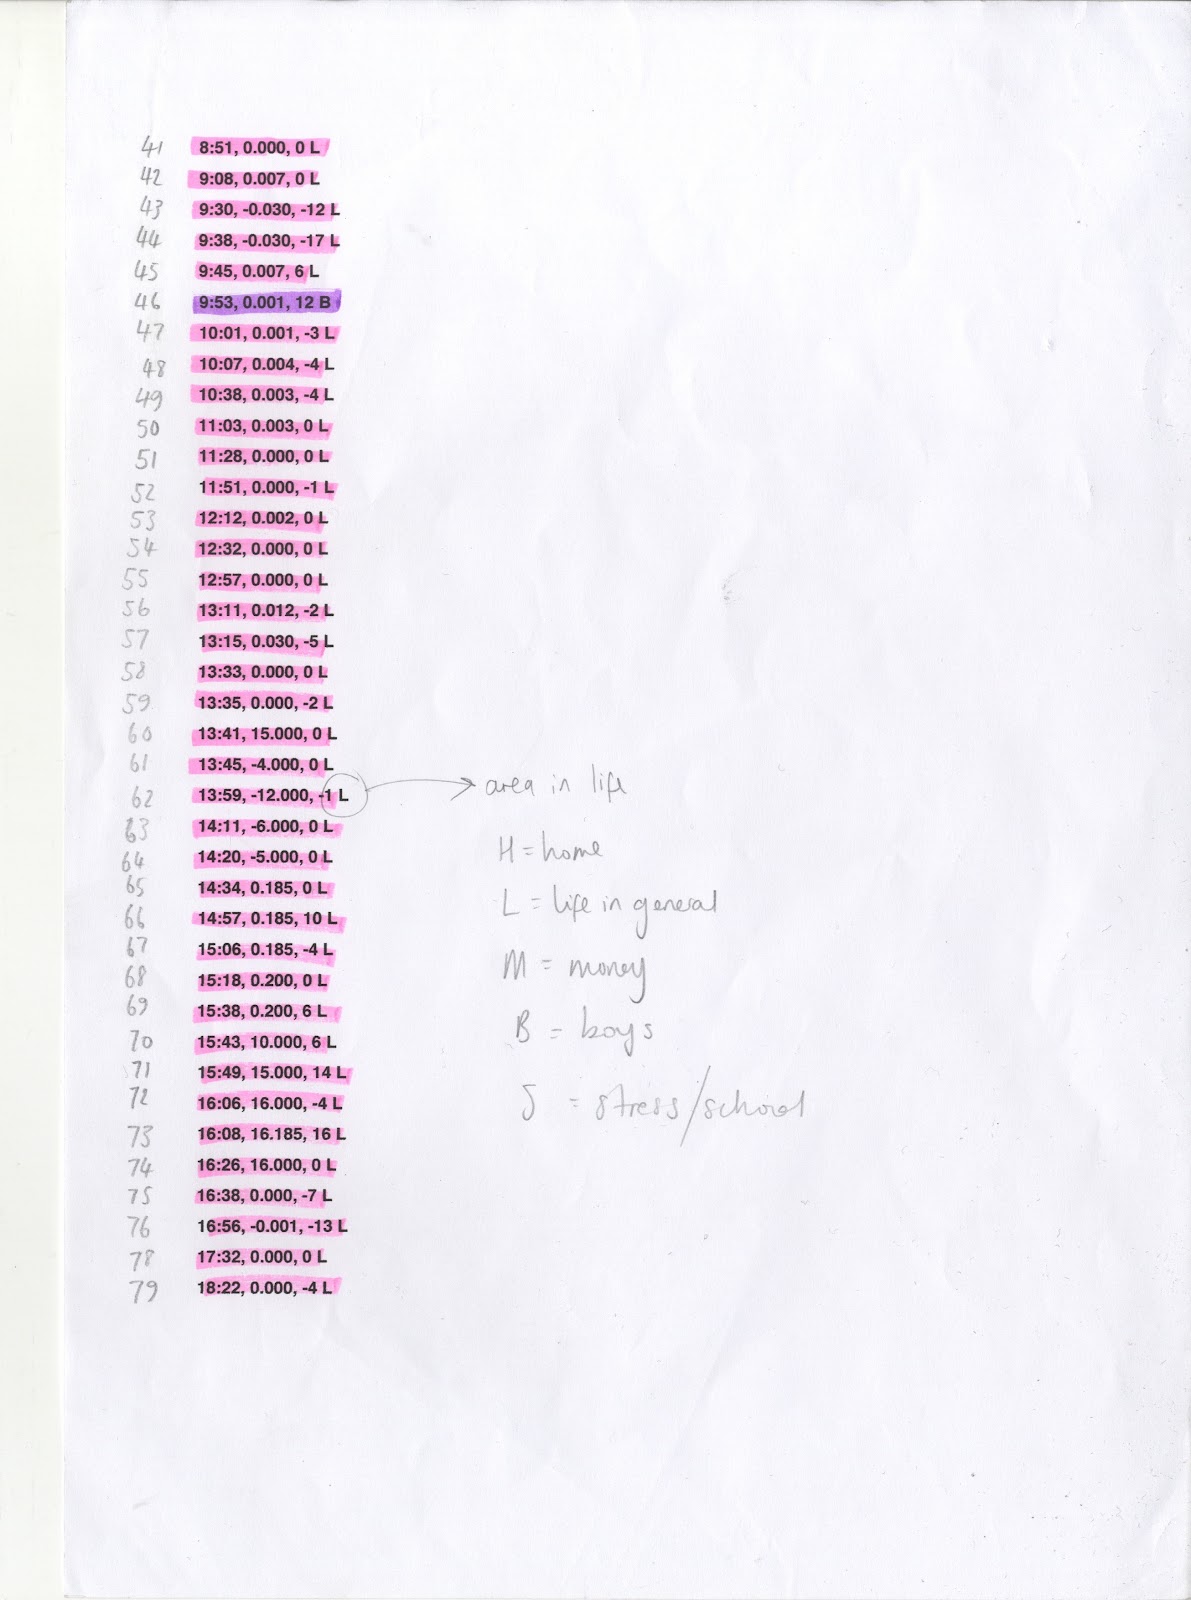 41 8:51, 0.000, 0 L
42 9:08, 0.007, 0 L
43 9:30, -0.030, -12 L
44 9:38, -0.030, -17 L
45 9:45, 0.007, 6 L
46 9:53, 0.001, 12 B
47 10:01, 0.001, -3 L
48 10:07, 0.004, -4 L
49 10:38, 0.003, -4 L
50 11:03, 0.003, 0 L
51 11:28, 0.000, 0 L
52 11:51, 0.000, -1 L
53 12:12, 0.002, 0 L
54 12:32, 0.000, 0 L
55 12:57, 0.000, 0 L
56 13:11, 0.012, -2 L
57 13:15, 0.030, -5 L
58 13:33, 0.000, 0 L
59 13:35, 0.000, -2 L
60 13:41, 15.000, 0 L
61 13:45, -4.000, 0 L
62 13:59, -12.000, -1 L
63 14:11, -6.000, 0 L
64 14:20, -5.000, 0 L
65 14:34, 0.185, 0 L
66 14:57, 0.185, 10 L
67 15:06, 0.185, -4 L
68 15:18, 0.200, 0 L
69 15:38, 0.200, 6 L
70 15:43, 10.000, 6 L
71 15:49, 15.000, 14 L
72 16:06, 16.000, -4 L
73 16:08, 16.185, 16 L
74 16:26, 16.000, 0 L
75 16:38, 0.000, -7 L
76 16:56, -0.001, -13 L
78 17:32, 0.000, 0 L
79 18:22, 0.000, -4 L
area in life
H = home
L = life in general
M = money
B = boys
S = stress/school